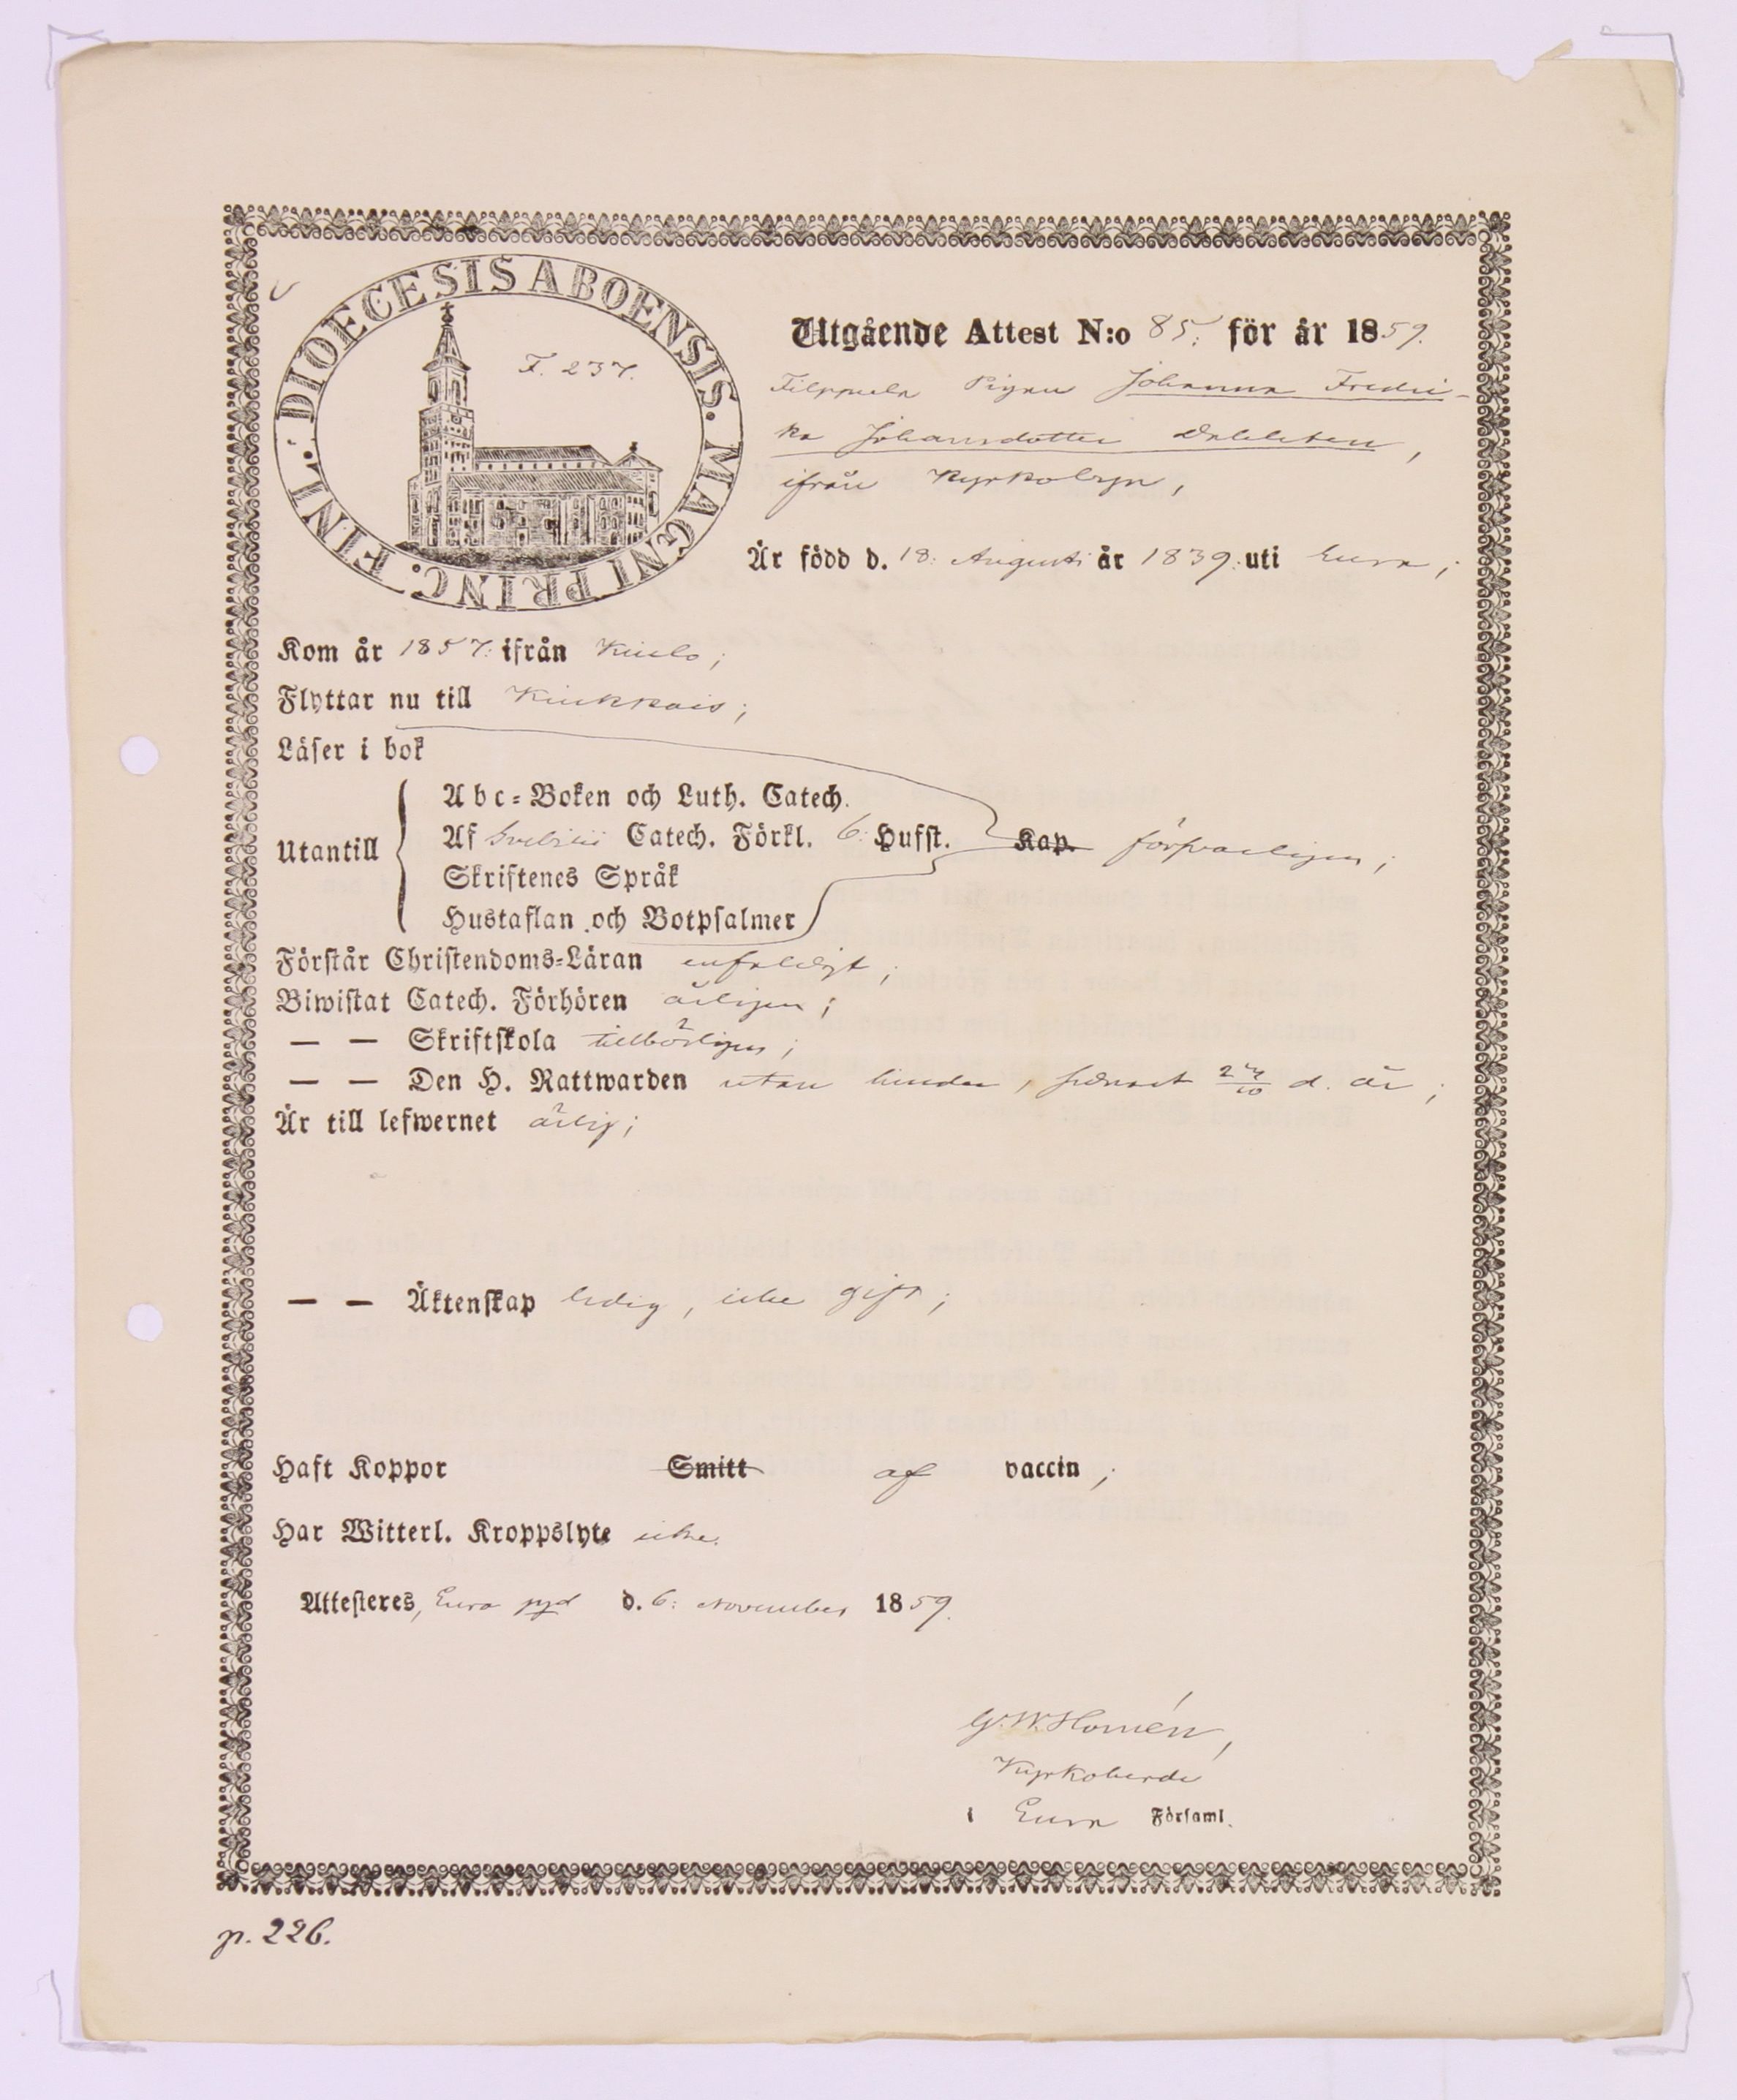 DIOECESIS ABOENSIS. MAGNI PRINC. FINL.
F. 237.
Utgående Attest N:o 85. för år 1859.
Pigan Johanna Fredri-
ka Johansdotter
ifrån Kyrkobyn,
Är född d. 18. Augusti år 1839. uti Eura;
Kom år 1857. ifrån Kiulo;
Flyttar nu till Kiukkais;
Läser i bok
Utantill
Abc-Boken och Luth. Catech.
Af Svebilii Catech. Förkl. 6. Hufst. Kap. försvarligen;
Skriftenes Språk
Hustaflan och Botpsalmer
Förstår Christendoms-Läran enfaldigt;
Biwistat Catech. Förhören årligen;
— — Skriftskola tillbörligen;
— — Den H. Nattwarden utan hinder, sednast d. år;
Är till lefwernet ärlig;
— — Äktenskap ledig, icke gift;
Haft Koppor Smitt af vaccin;
Har Witterl. Kroppslyte icke.
Attesteres, Eura pgd d. 6. November 1859.
G. W. Homén,
Kyrkoherde
i Eura Församl.
p. 226.